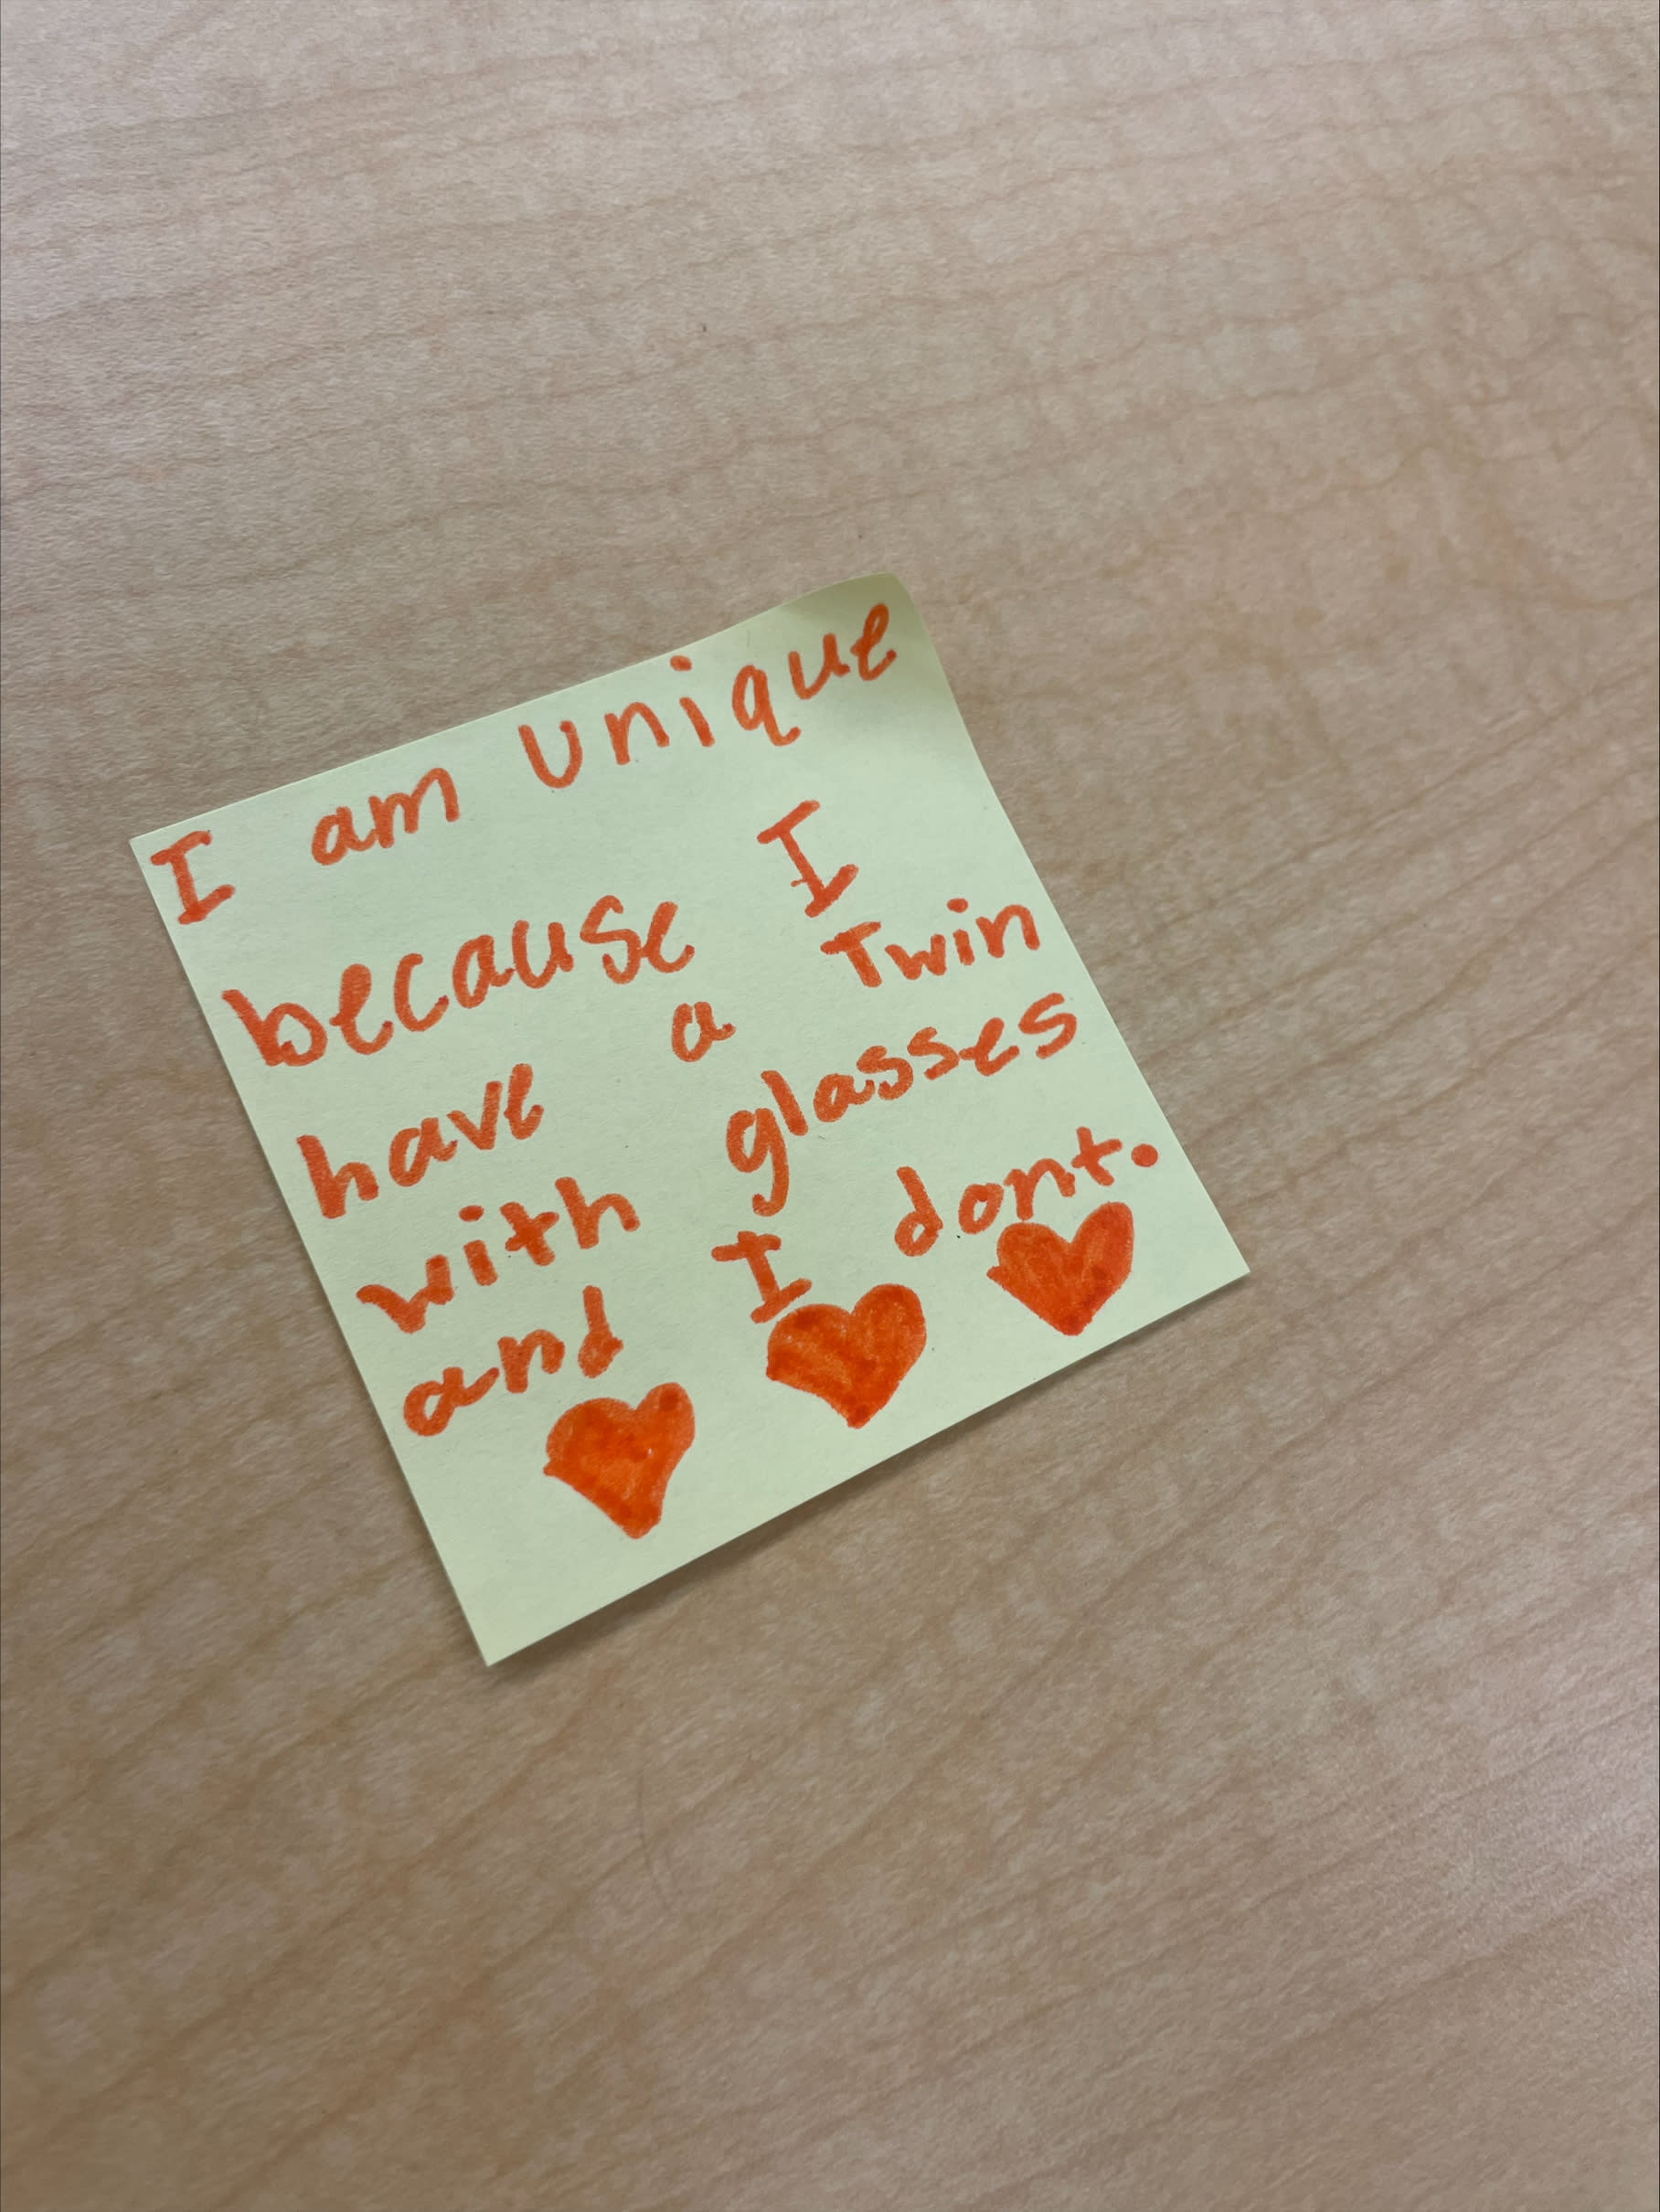 I am unique
because I
have a Twin
with glasses
and I dont.